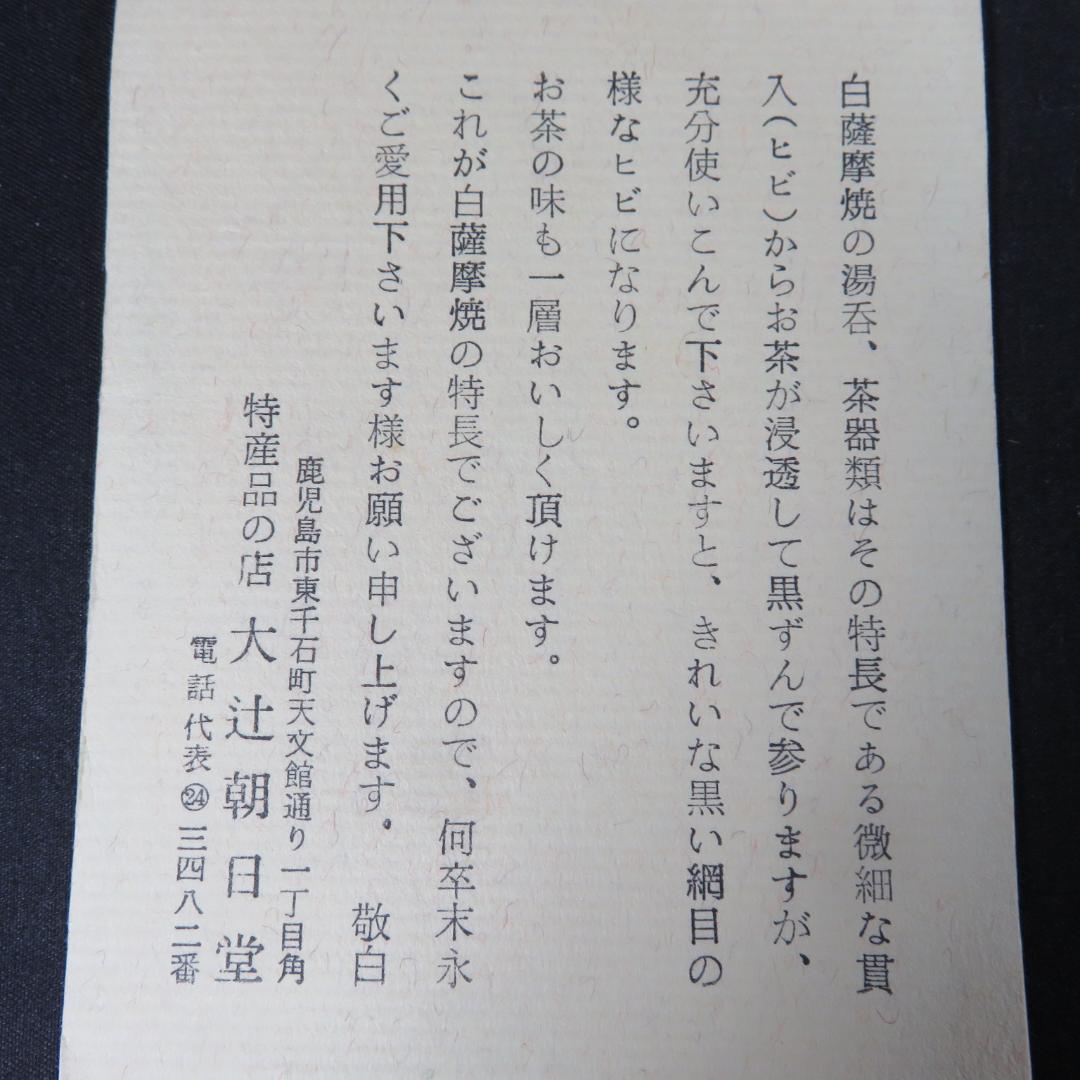 白薩摩焼の湯呑、茶器類はその特長である微細な貫
入(ヒビ)からお茶が浸透して黒ずんで参りますが、
充分使いこんで下さいますと、きれいな黒い網目の
様なヒビになります。
お茶の味も一層おいしく頂けます。
これが白薩摩焼の特長でございますので、何卒末永
くご愛用下さいます様お願い申し上げます。 敬白
鹿児島市東千石町天文館通り一丁目角
特産品の店 大辻朝日堂
電話代表㉔三四八二番